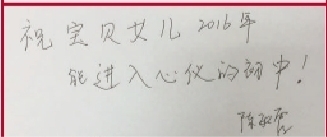 祝宝贝女儿2016年
能进入心仪的初中！
陈